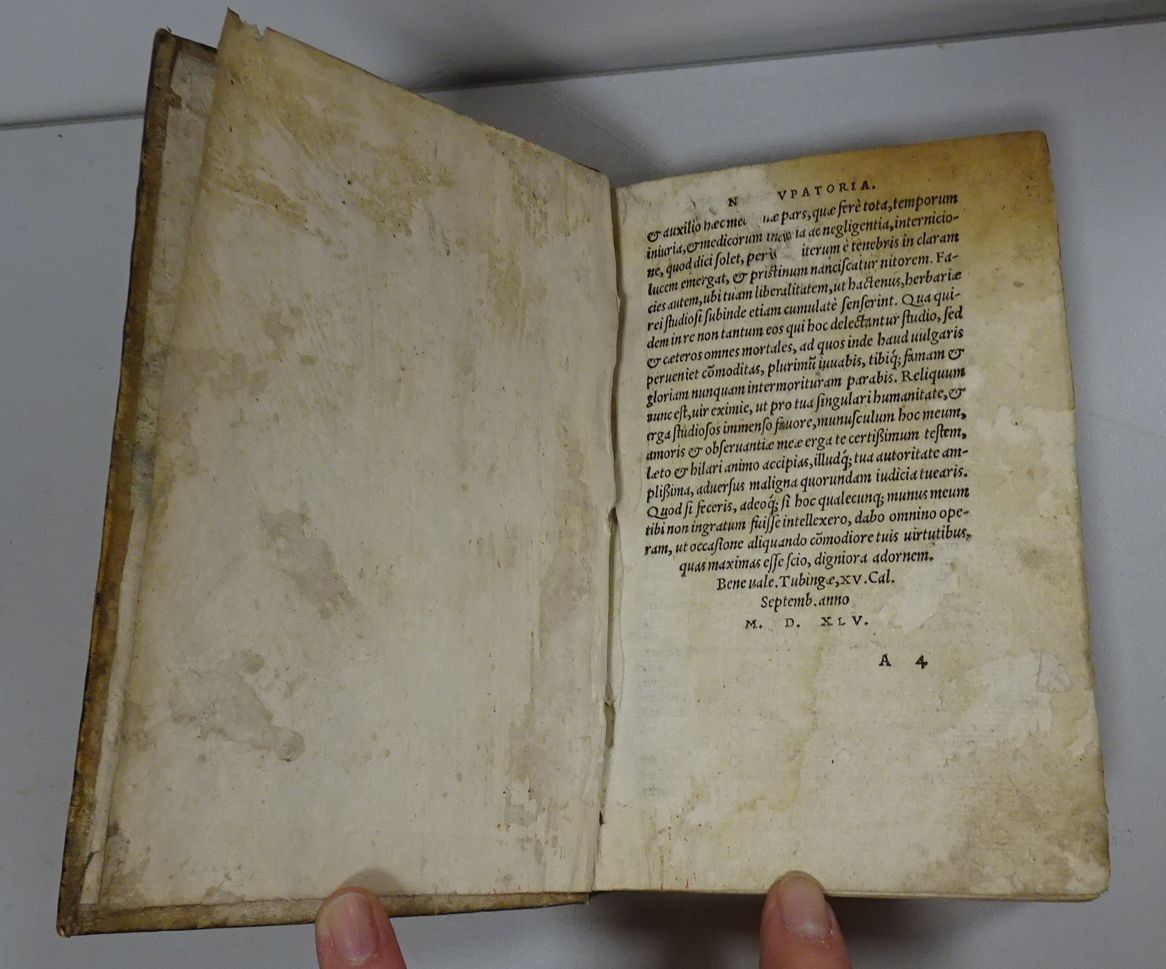 N VPATORIA.
& auxilio hæc me næ pars, quæ ferè tota, temporum
iniuria, & medicorum ac negligentia, internicio-
ne, quod dici solet, iterum è tenebris in claram
lucem emergat, & pristinum nanciscatur nitorem. Fa-
cies autem, ubi tuam liberalitatem, ut hactenus, herbariæ
rei studiosi subinde etiam cumulatè senserint. Qua qui-
dem in re non tantum eos qui hoc delectantur studio, sed
& cæteros omnes mortales, ad quos inde haud uulgaris
perueniet cõmoditas, plurimũ iuuabis, tibiq́; famam &
gloriam nunquam intermorituram parabis. Reliquum
nunc est, uir eximie, ut pro tua singulari humanitate, &
erga studiosos immenso fauore, munusculum hoc meum,
amoris & obseruantiæ meæ erga te certißimum testem,
læto & hilari animo accipias, illudq́; tua autoritate am-
plißima, aduersus maligna quorundam iudicia tuearis.
Quod si feceris, adeoq́; si hoc qualecunq; munus meum
tibi non ingratum fuisse intellexero, dabo omnino ope-
ram, ut occasione aliquando cõmodiore tuis uirtutibus,
quas maximas esse scio, digniora adornem.
Bene uale. Tubingæ, XV. Cal.
Septemb. anno
M. D. XLV.
A 4